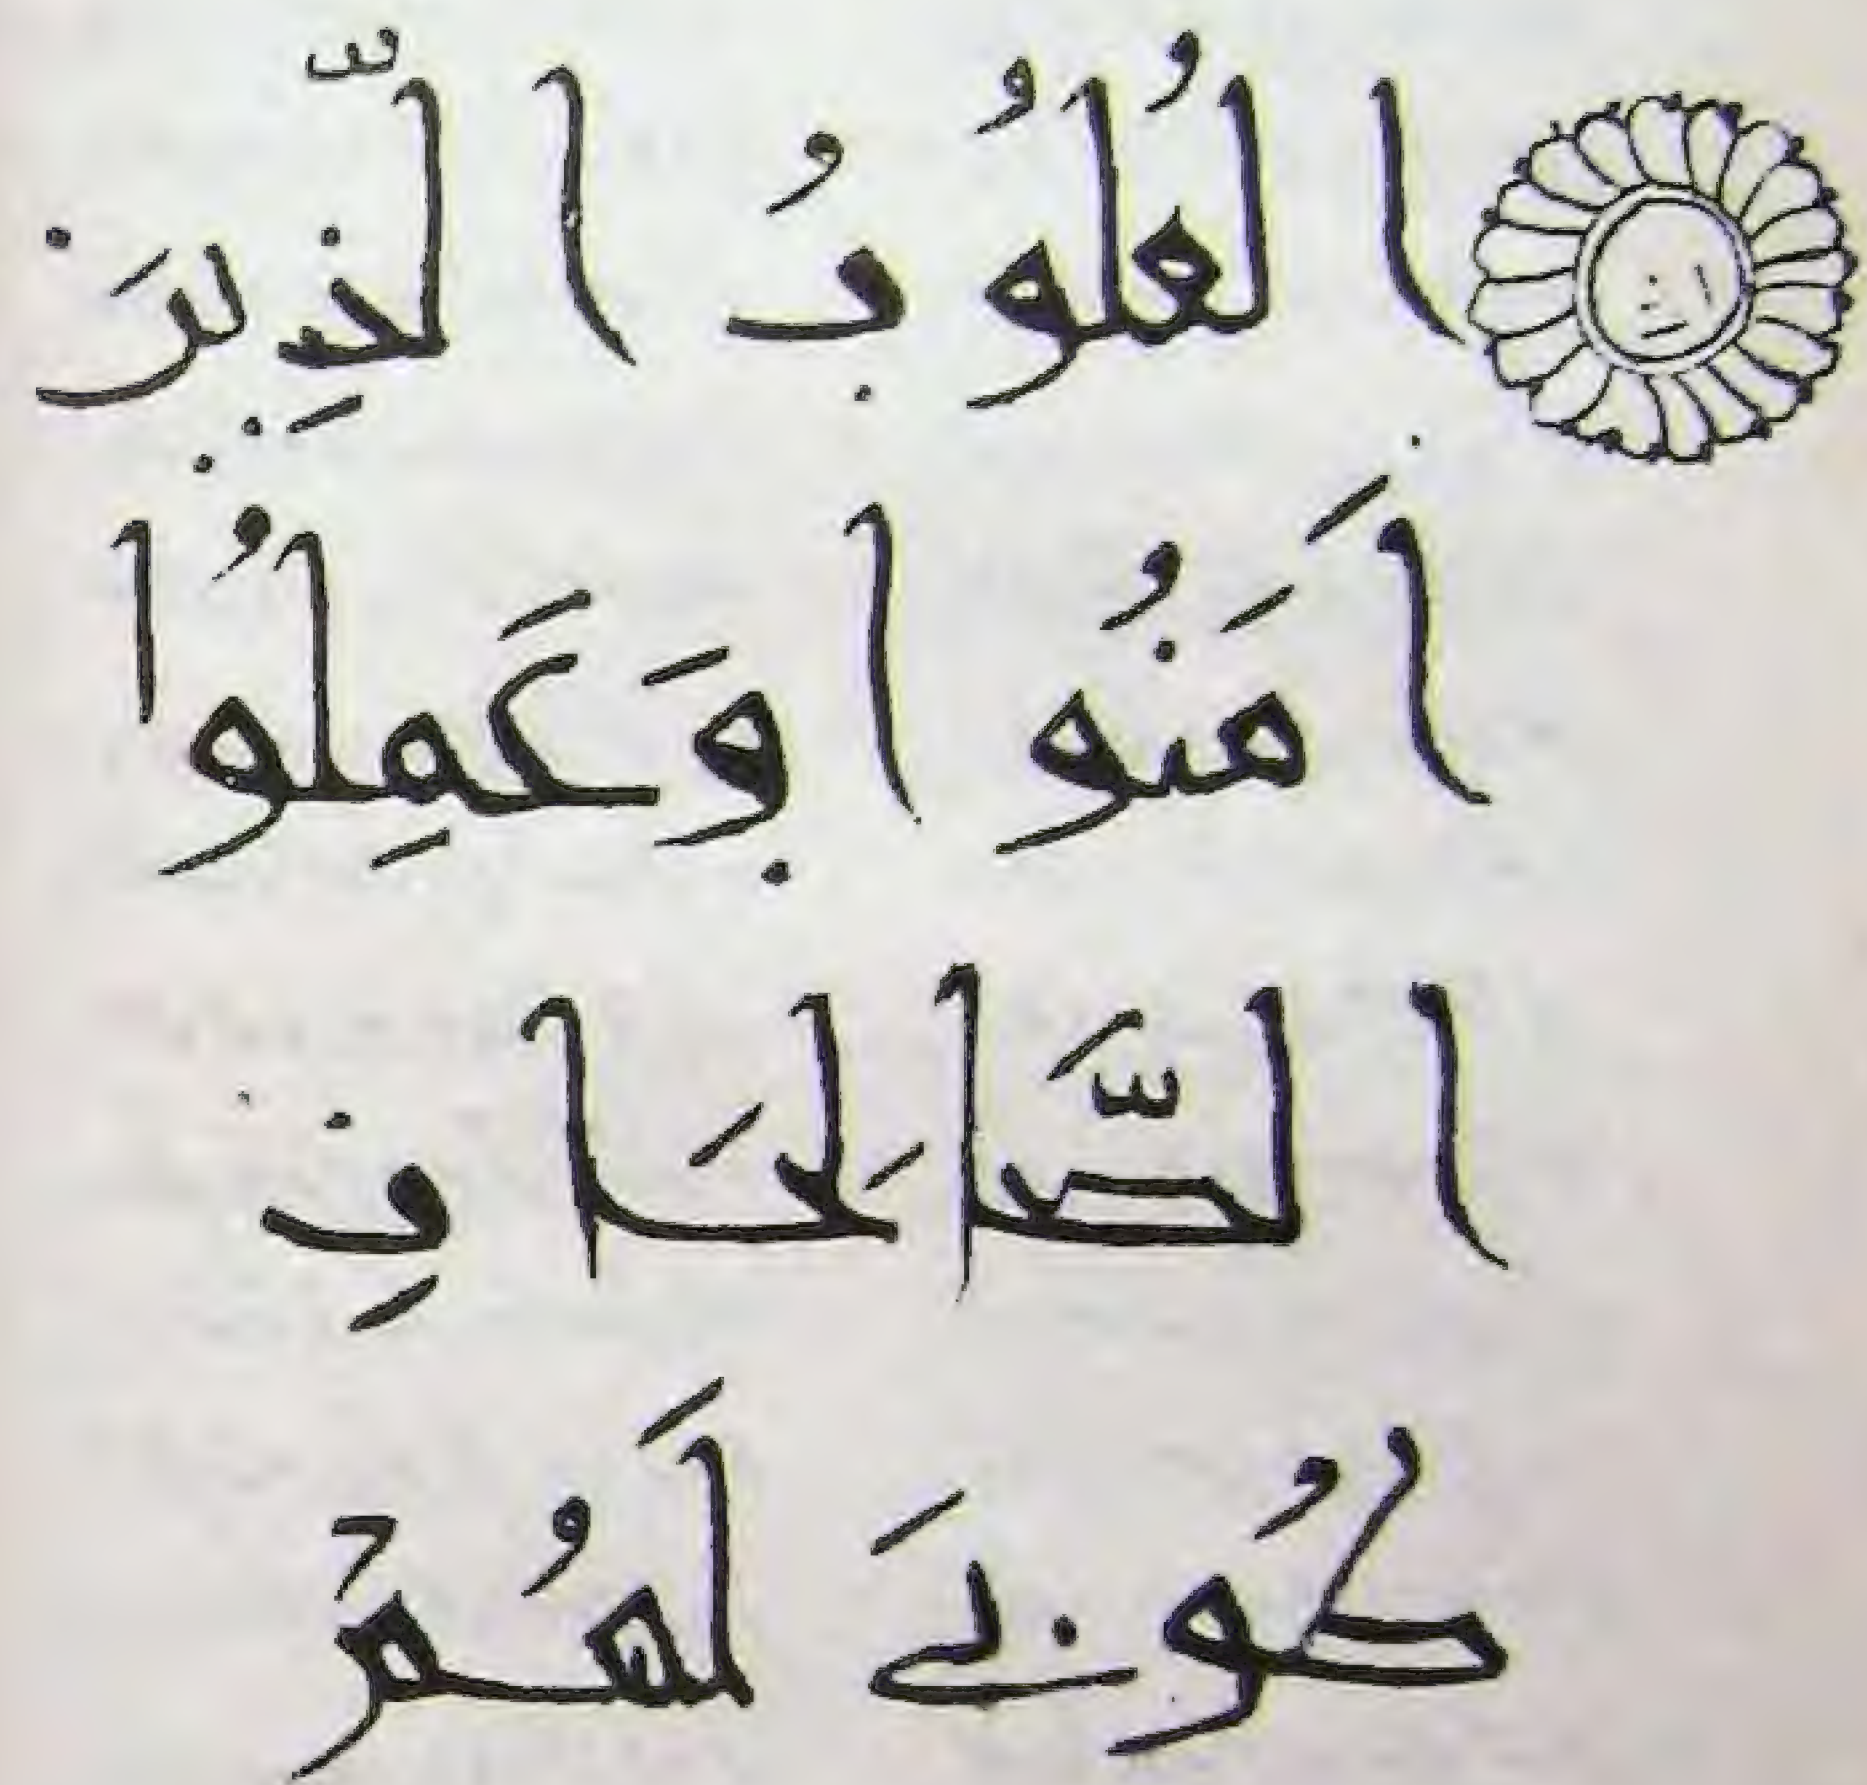 الْقُلُوبُ الّذِينَ
اَمَنُوا وَعَمِلُوا
الصَّالِحَاتِ
طُوبَى لَهُمْ